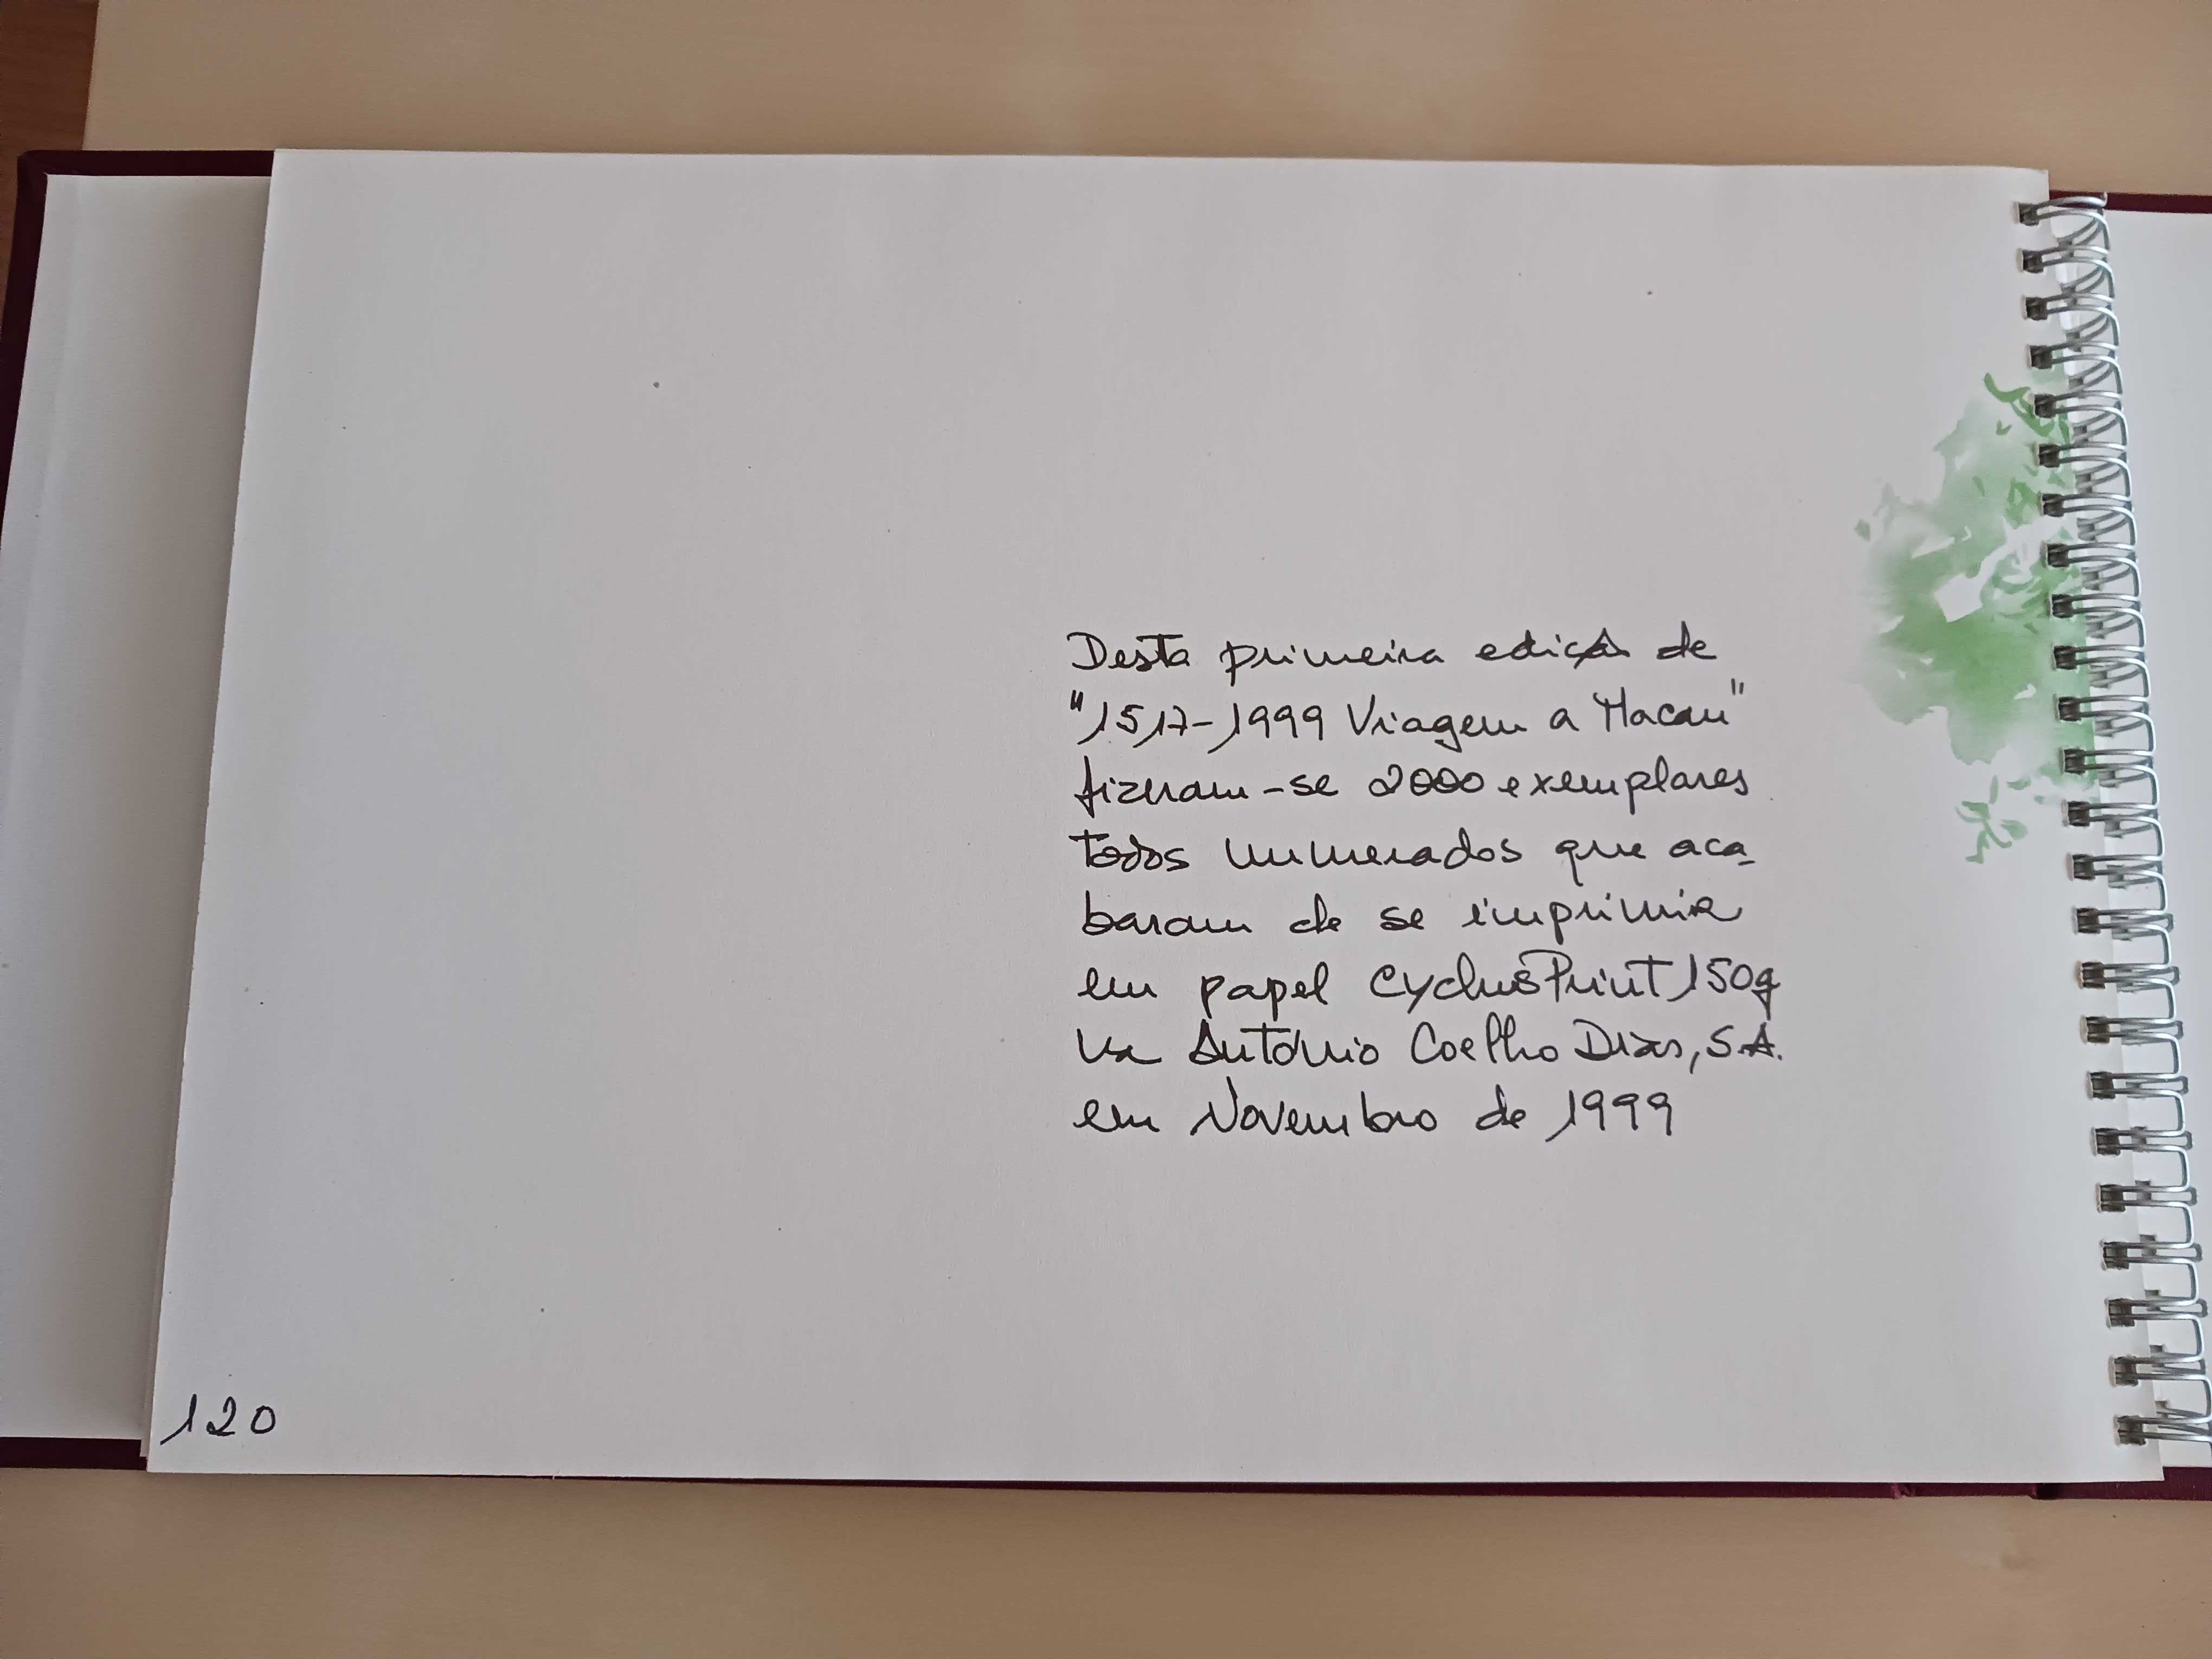 Desta primeira edição de
"1517-1999 Viagem a Macau"
fizeram-se 2000 exemplares
todos numerados que aca-
baram de se imprimir
em papel CyclusPrint 150g
na António Coelho Dias, S.A.
em Novembro de 1999
120